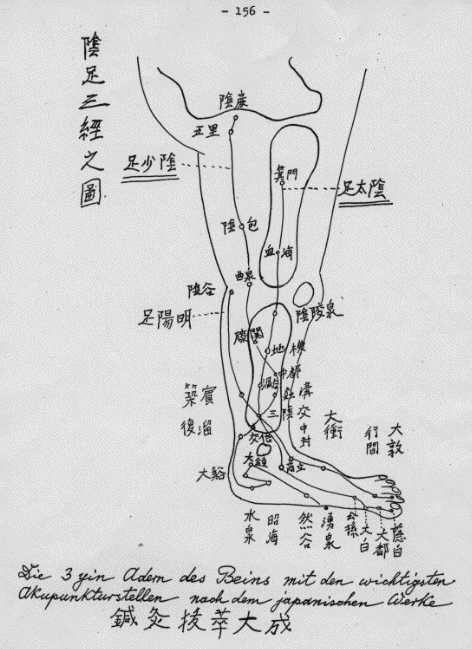 - 156 -
陰足三經之圖
陰廉
五里
足少陰
箕門
足太陰
陰包
血海
曲泉
陰谷
陰陵泉
足陽明
膝關
地機
中都
漏谷
蠡溝
三陰交
築賓
復溜
中封
大衝
行間
大敦
交信
大鍾
商丘
大谿
水泉
照海
然谷
湧泉
公孫
大白
大都
隠白
Die 3 yin Adern des Beins mit den wichtigsten
Akupunkturstellen nach dem japanischen Werke
鍼灸拔萃大成